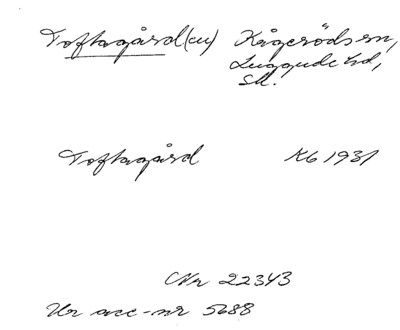 Toftagård(en) Kågeröds sn,
Luggude hd,
Sk.
Toftagård K6 1931
Nr 22343
Ur acc-nr 5688